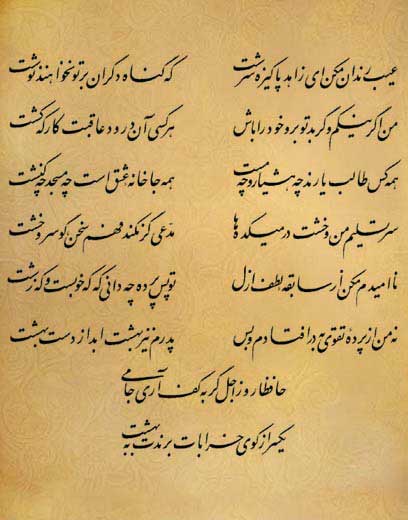 عیب رندان مکن ای زاهد پاکیزه سرشت که گناه دگران بر تو نخواهند نوشت
من اگر نیکم و گر بد تو برو خود را باش هر کسی آن درود عاقبت کار که کشت
همه کس طالب یارند چه هشیار و چه مست همه جا خانه عشق است چه مسجد چه کنشت
سر تسلیم من و خشت در میکده ها مدعی گر نکند فهم سخن گو سر و خشت
ناامیدم مکن از سابقه لطف ازل تو پس پرده چه دانی که که خوبست و که زشت
نه من از پرده تقوی به در افتادم و بس پدرم نیز بهشت ابد از دست بهشت
حافظا روز اجل گر به کف آری جامی
یکسر از کوی خرابات برندت به بهشت